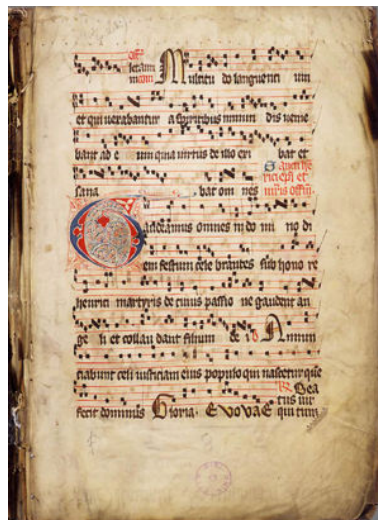 Multitu do languenti um
et qui vexabantur a spiritibus inmun dis venie
bant ad e um quia virtus de illo exi bat et
sana bat om nes
audeamus omnes in do mi no di
em festum cele brantes sub hono re
henrici martyris de cuius passio ne gaudent an
ge li et collau dant filium de i Annun
ciabunt celi iusticiam eius populo qui nascetur que
fecit dominus Gloria. EVOVAE qui tim